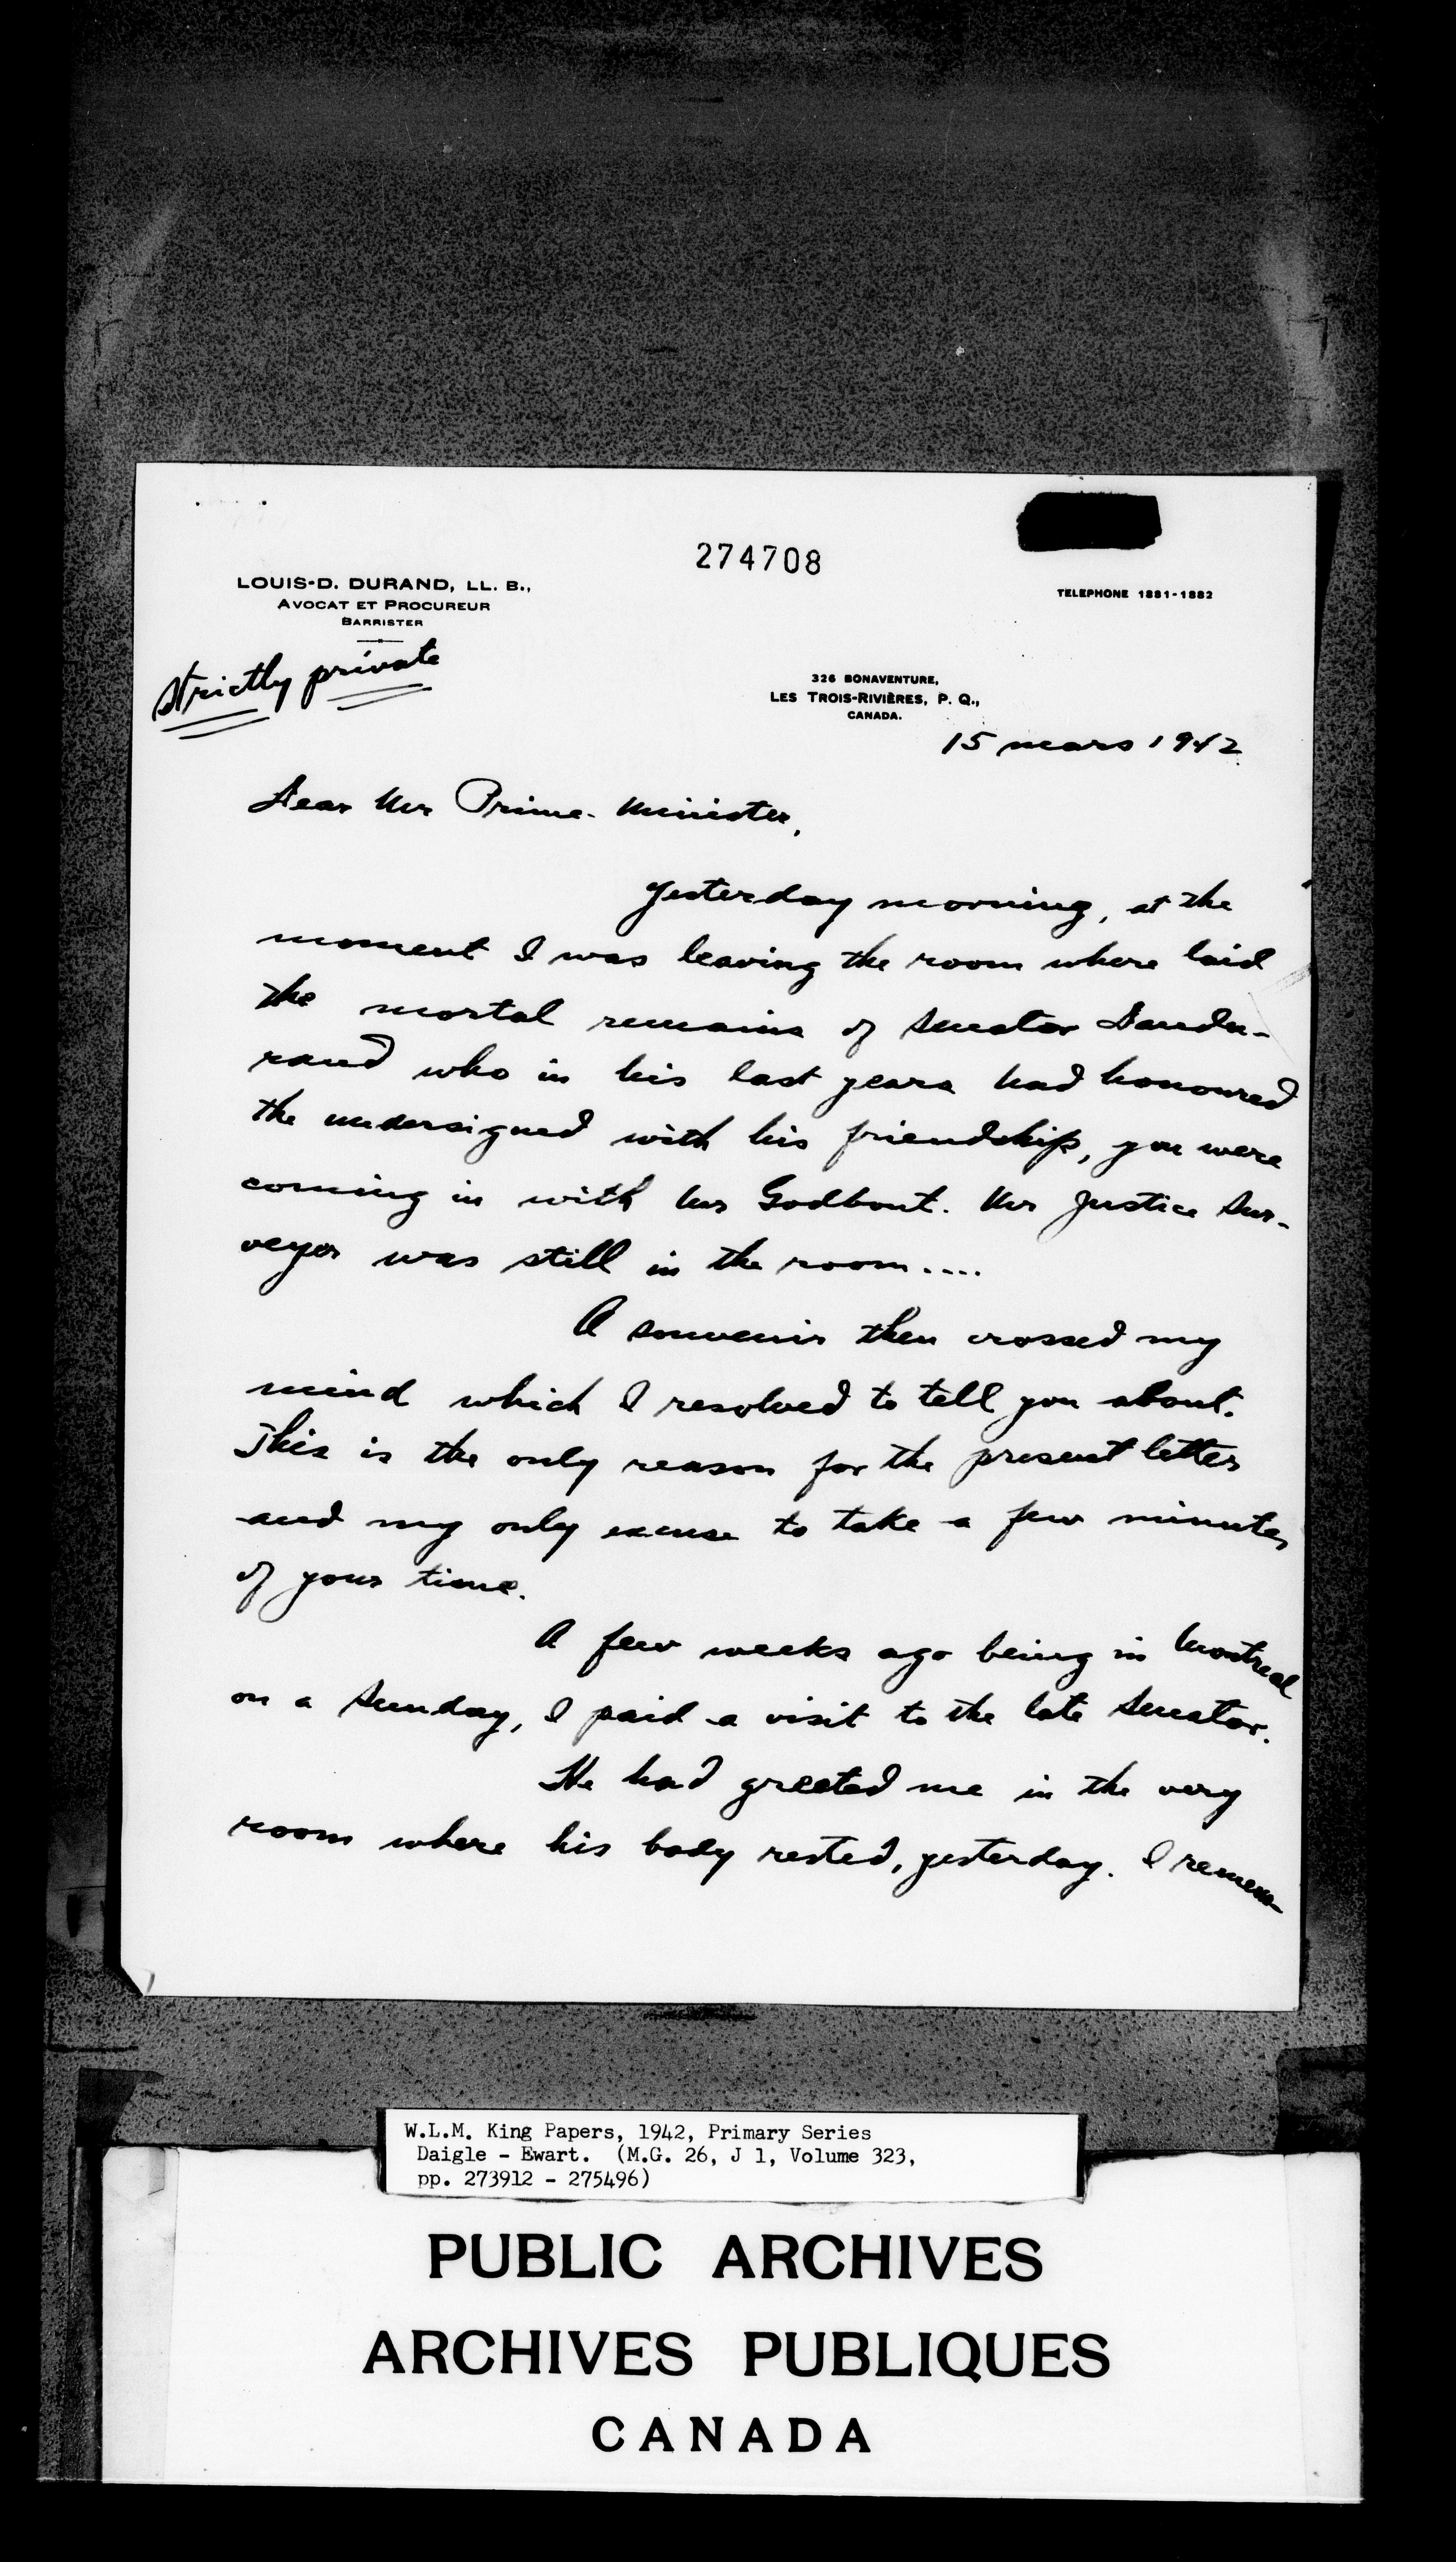 274708
LOUIS-D. DURAND, LL. B.,
AVOCAT ET PROCUREUR
BARRISTER
TELEPHONE 1881-1882
strictly private
326 BONAVENTURE,
LES TROIS-RIVIÈRES, P. Q.,
CANADA.
15 mars 1942
Dear Mr Prime-Minister,
Yesterday morning, at the
moment I was leaving the room where laid
the mortal remains of Senator Dandu-
rand who in his last years had honoured
the undersigned with his friendship, you were
coming in with Mr Godbout. Mr Justice Sur-
veyer was still in the room....
A souvenir then crossed my
mind which I resolved to tell you about.
This is the only reason for the present letter
and my only excuse to take a few minutes
of your time.
A few weeks ago being in Montreal
on a Sunday, I paid a visit to the late Senator.
He had greeted me in the very
room where his body rested, yesterday. I remem-
W.L.M. King Papers, 1942, Primary Series
Daigle - Ewart. (M.G. 26, J 1, Volume 323,
pp. 273912 - 275496)
PUBLIC ARCHIVES
ARCHIVES PUBLIQUES
CANADA